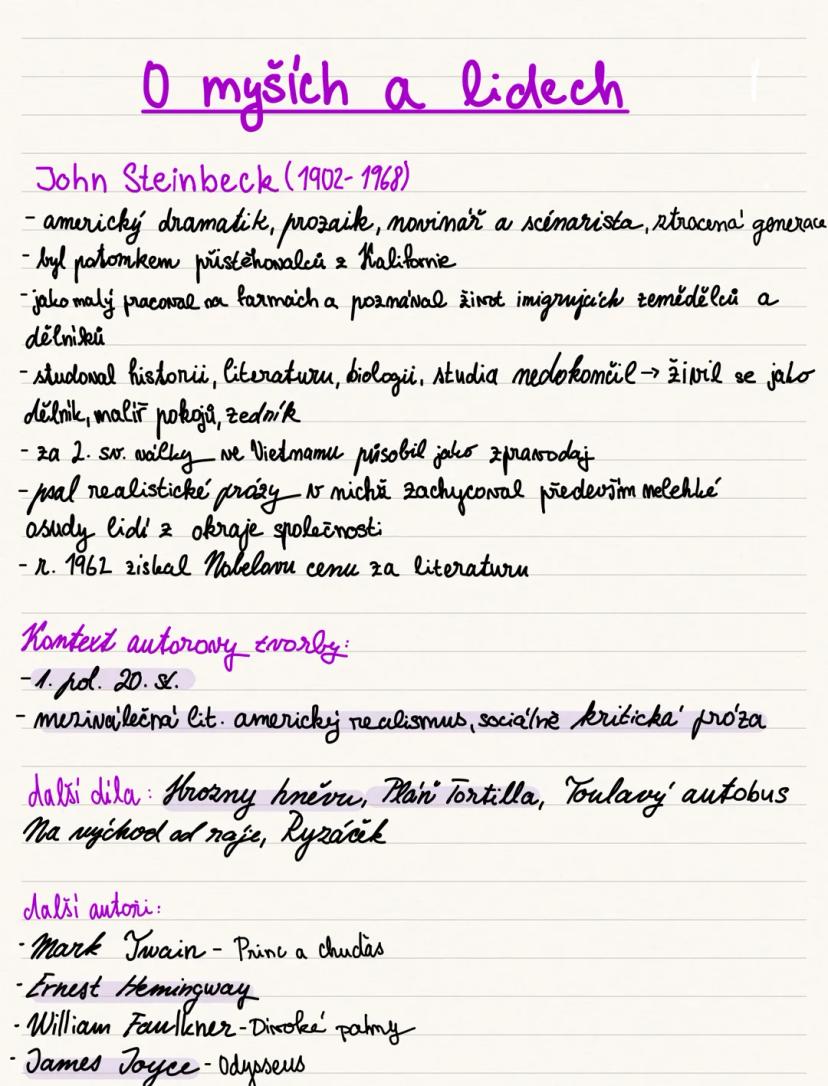 O myších a lidech
John Steinbeck (1902-1968)
- americký dramatik, prozaik, novinář a scénarista, ztracená generace
- byl potomkem přistěhovalců z Kalifornie
- jako malý pracoval na farmách a poznával život imigrujících zemědělců a
dělníků
- studoval historii, literaturu, biologii, studia nedokončil → živil se jako
dělník, malíř pokojů, zedník
- za 2. sv. války ve Vietnamu působil jako zpravodaj
- psal realistické prózy v nichž zachycoval především nelehké
osudy lidí z okraje společnosti
- r. 1962 získal Nobelovu cenu za literaturu
Kontext autorovy tvorby:
- 1. pol. 20. st.
- meziválečná lit. americký realismus, sociálně kritická próza
další díla: Hrozny hněvu, Pláň Tortilla, Toulavý autobus
Na východ od ráje, Ryzáček
další autoři:
· Mark Twain - Princ a chuďas
· Ernest Hemingway
· William Faulkner - Divoké palmy
· James Joyce - Odysseus